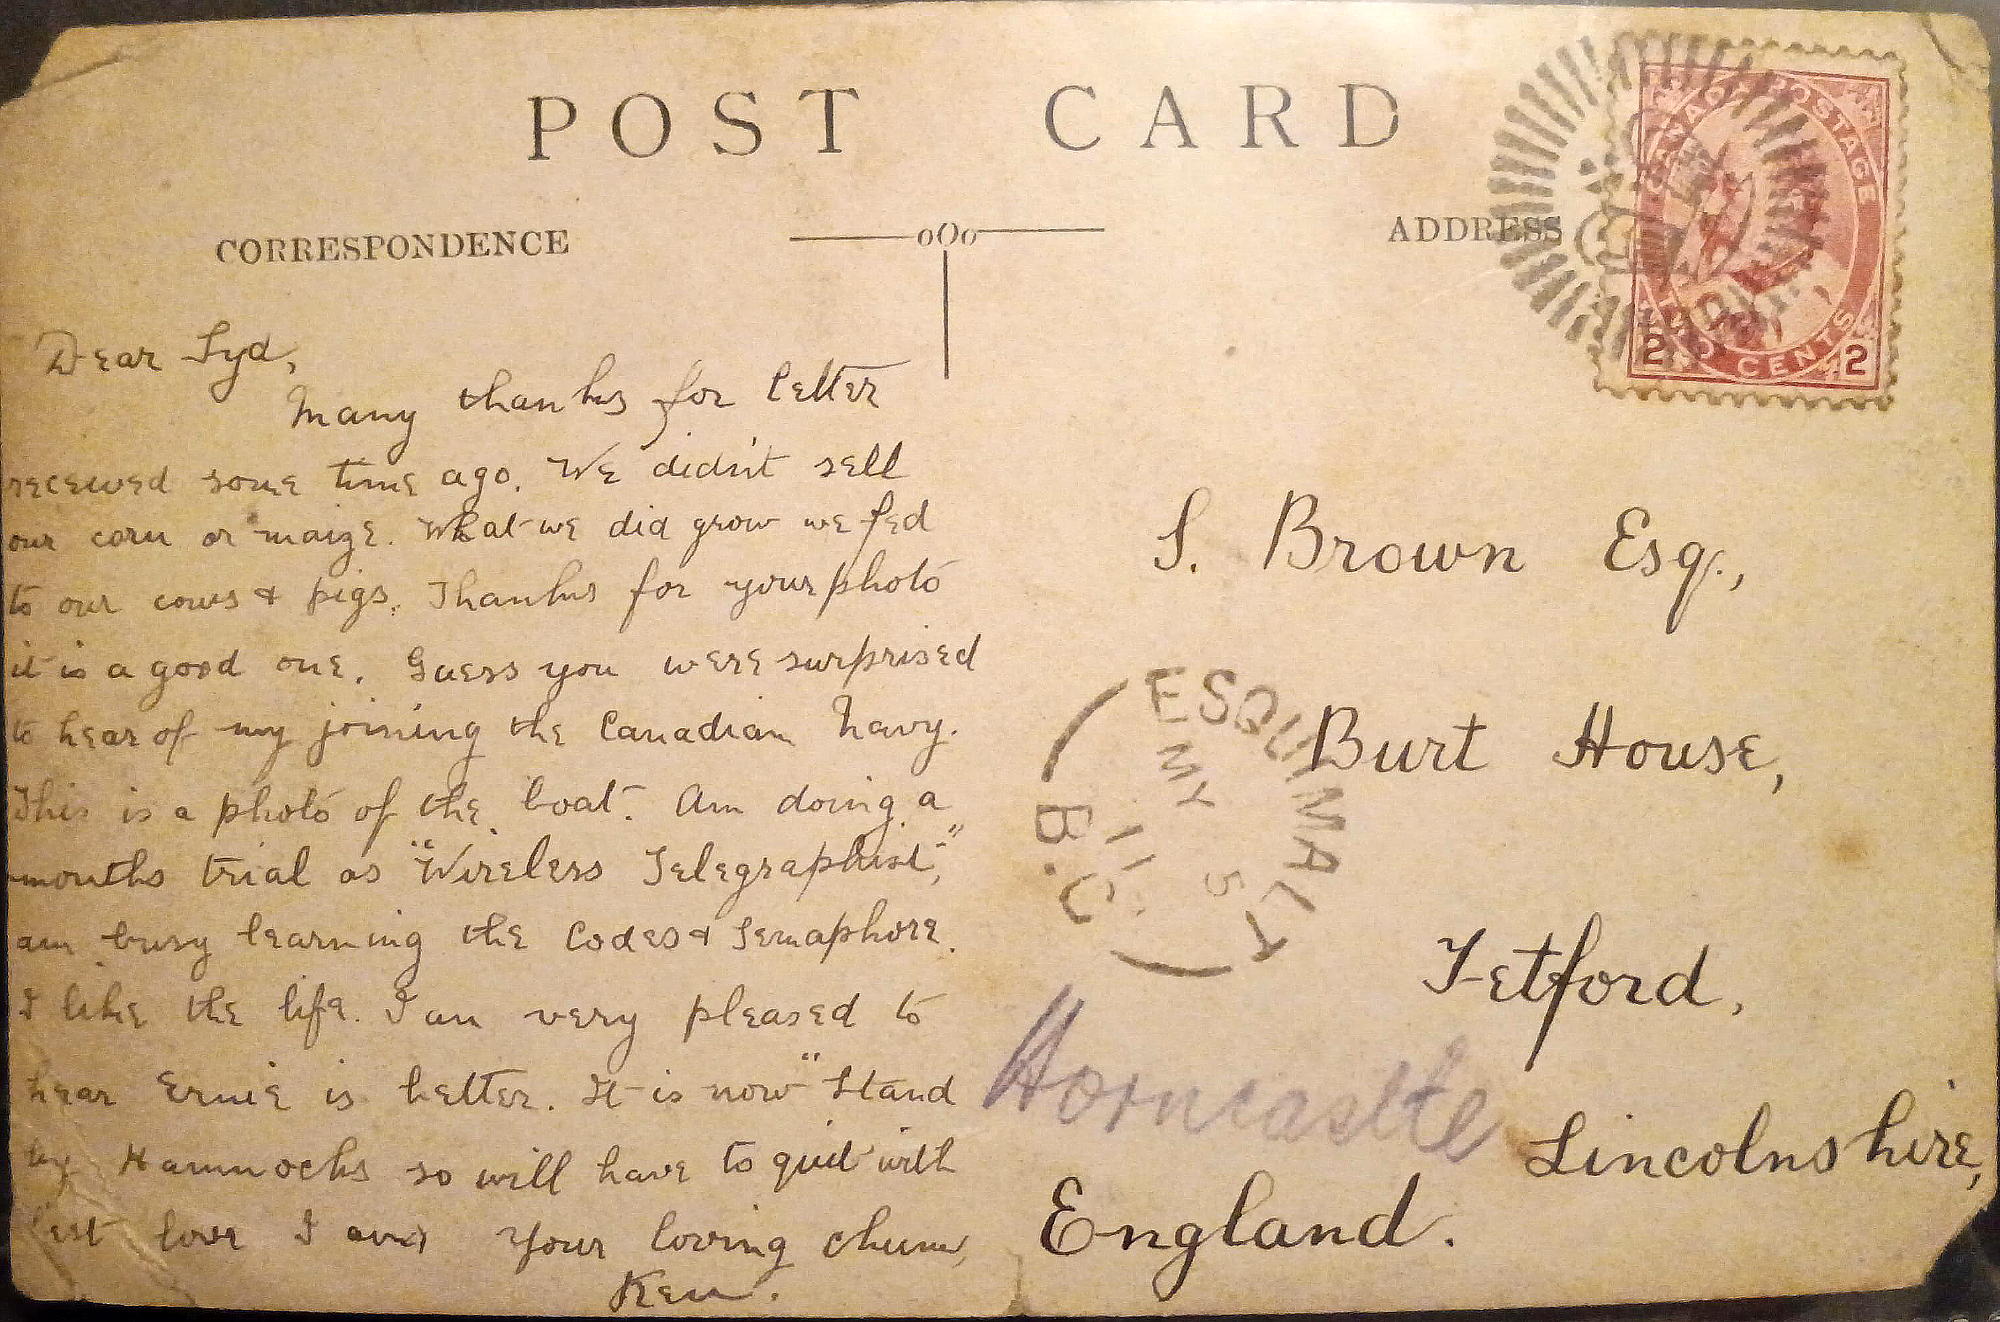 POST CARD
CORRESPONDENCE
ADDRESS
CANADA POSTAGE
TWO CENTS
2 2
Dear Syd,
Many thanks for letter
received some time ago. We didn't sell
our corn or maize. What we did grow we fed
to our cows & pigs. Thanks for your photo
it is a good one. Guess you were surprised
to hear of my joining the Canadian Navy.
This is a photo of the boat. Am doing a
months trial as "Wireless Telegraphist",
am busy learning the Codes & Semaphore.
I like the life. I am very pleased to
hear Ernie is better. It is now "Stand
by Hammocks so will have to quit with
best love I am your loving chum,
Ken.
S. Brown Esq.,
Burt House,
Tetford,
Horncastle
Lincolnshire,
England.
ESQUIMALT
B.C
E
MY 5
11